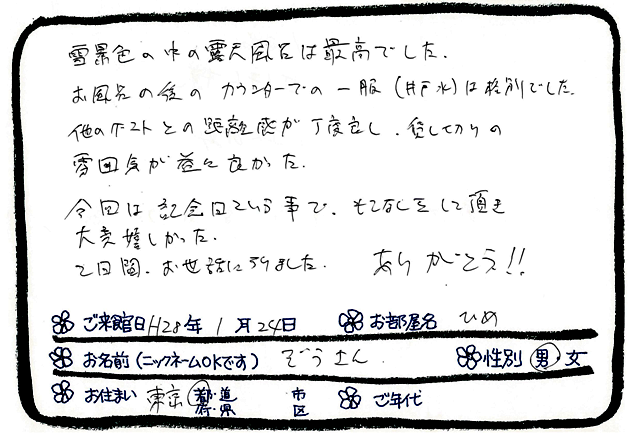 雪景色の中の露天風呂は最高でした.
お風呂の後のカウンターでの一服(井戸水)は格別でした.
他のゲストとの距離感が丁度良し、貸し切りの
雰囲気が益々良かった.
今回は記念日という事で、もてなしをして頂き
大変嬉しかった.
2日間、お世話になりました. ありがとう!!
ご来館日 H28年 1月24日 お部屋名 ひめ
お名前(ニックネームOKです) ぞうさん 性別 男・女
お住まい 東京 都・道 府・県 市 区 ご年代